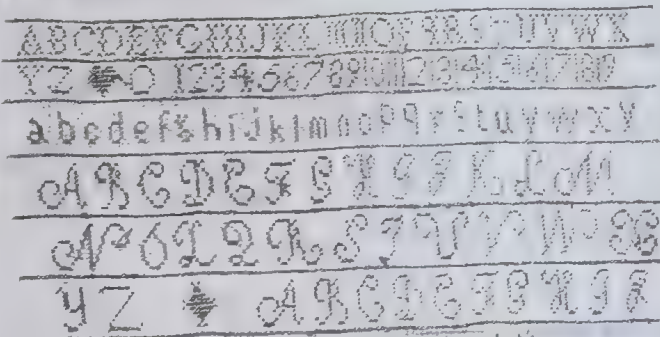 A B C D E F G H I J K L M N O P R R S T U V W X
Y Z 0 1 2 3 4 5 6 7 8 9 10 11 12 13 14 15 16 17 18 19
a b c d e f g h i j k l m n o p q r s t u v w x y
A B C D E F G H I J K L M
N O P Q R S T U V W X
Y Z A B C D E F G H I K